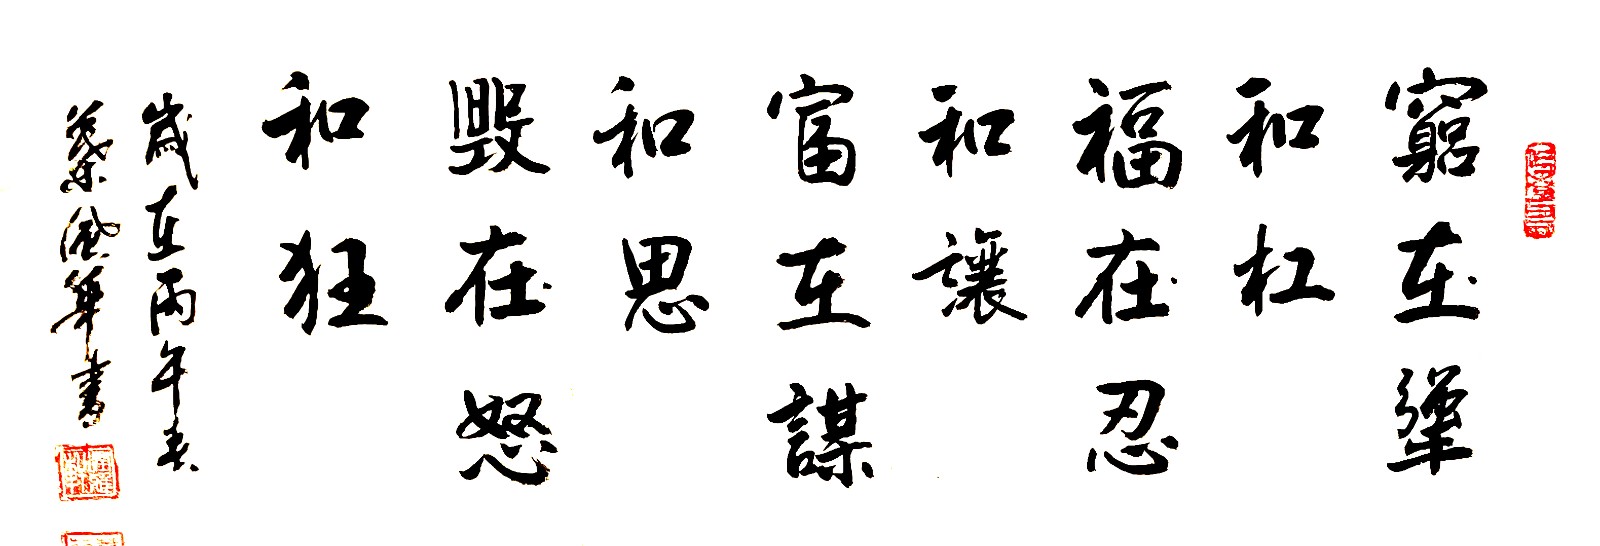 窮在犟
和杠
福在忍
和讓
富在謀
和思
毀在怒
和狂
歲在丙午春
風華書